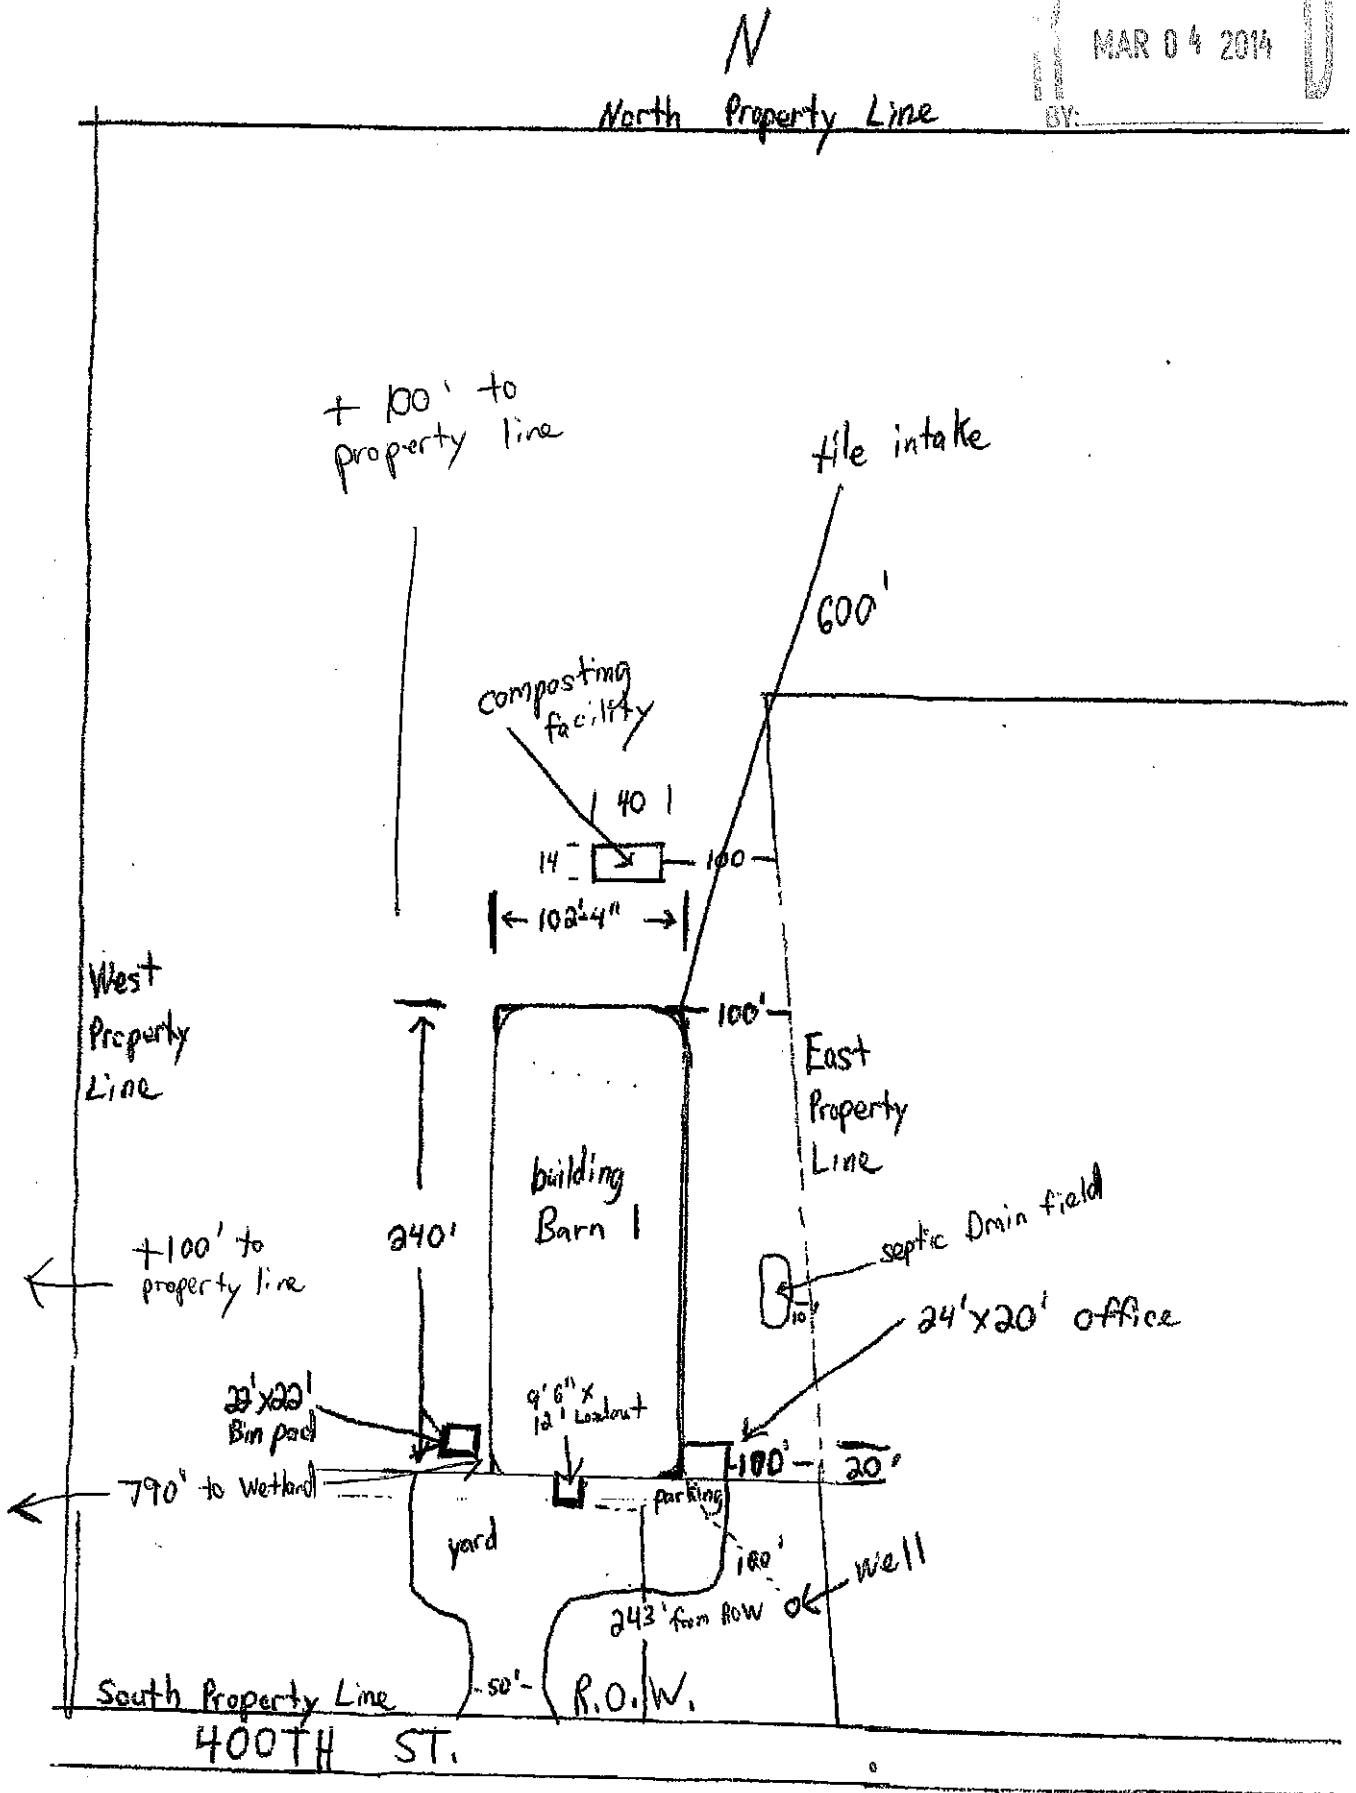 N
MAR 04 2014
BY:
North Property Line
+ 100' to
property line
tile intake
600'
composting
facility
40
14
100
102'-4"
West
Property
Line
100'
East
Property
Line
building
Barn 1
240'
+100' to
property line
septic Drain field
10'
24'x20' office
22'x22'
Bin pad
9'6" x
12' Loadout
100'
20'
790' to Wetland
parking
yard
100'
well
243' from ROW
50'
R.O.W.
South Property Line
400TH ST.